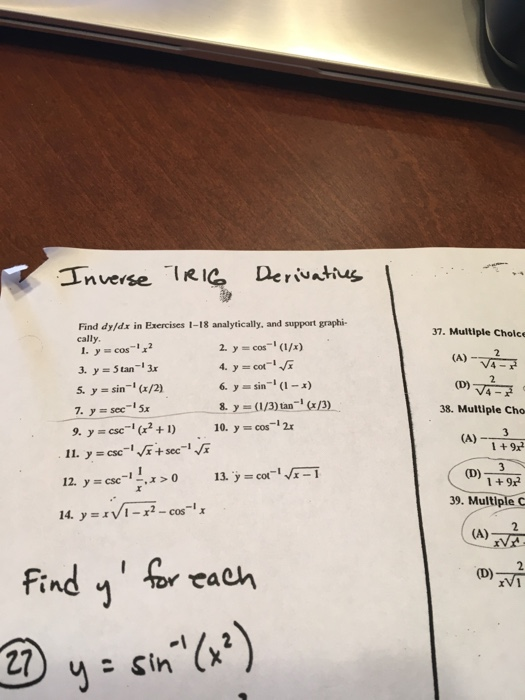 Inverse TRIG Derivatives
Find dy/dx in Exercises 1–18 analytically, and support graphi-
cally.
1. y = cos⁻¹ x²
2. y = cos⁻¹ (1/x)
3. y = 5 tan⁻¹ 3x
4. y = cot⁻¹ √x
5. y = sin⁻¹ (x/2)
6. y = sin⁻¹ (1 − x)
7. y = sec⁻¹ 5x
8. y = (1/3) tan⁻¹ (x/3)
9. y = csc⁻¹ (x² + 1)
10. y = cos⁻¹ 2x
11. y = csc⁻¹ √x + sec⁻¹ √x
12. y = csc⁻¹ 1/x, x > 0
13. y = cot⁻¹ √x − 1
14. y = x√1 − x² − cos⁻¹ x
Find y' for each
27 y = sin⁻¹(x²)
37. Multiple Choice
(A) − 2/√4 − x²
(D) 2/√4 − x²
38. Multiple Cho
(A) − 3/1 + 9x²
(D) 3/1 + 9x²
39. Multiple C
(A) 2
(D) 2